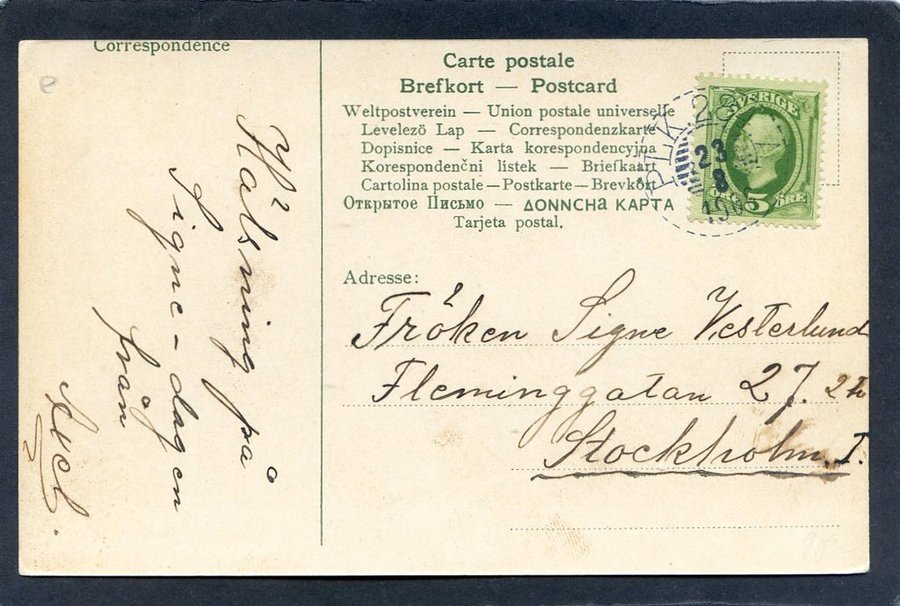 Correspondence
e
Hälsning på
Signe-dagen
från
Axel.
Carte postale
Brefkort — Postcard
Weltpostverein — Union postale universelle
Levelezö Lap — Correspondenzkarte
Dopisnice — Karta korespondencyjna
Korespondenčni listek — Briefkaart
Cartolina postale — Postkarte — Brevkort
Открытое Письмо — ΔΟΝΝCHA KAPTA
Tarjeta postal.
SVERIGE
5 ÖRE
PLK 28
23
8
Adresse:
Fröken Signe Vesterlund
Fleminggatan 27. 2tr
Stockholm. I.